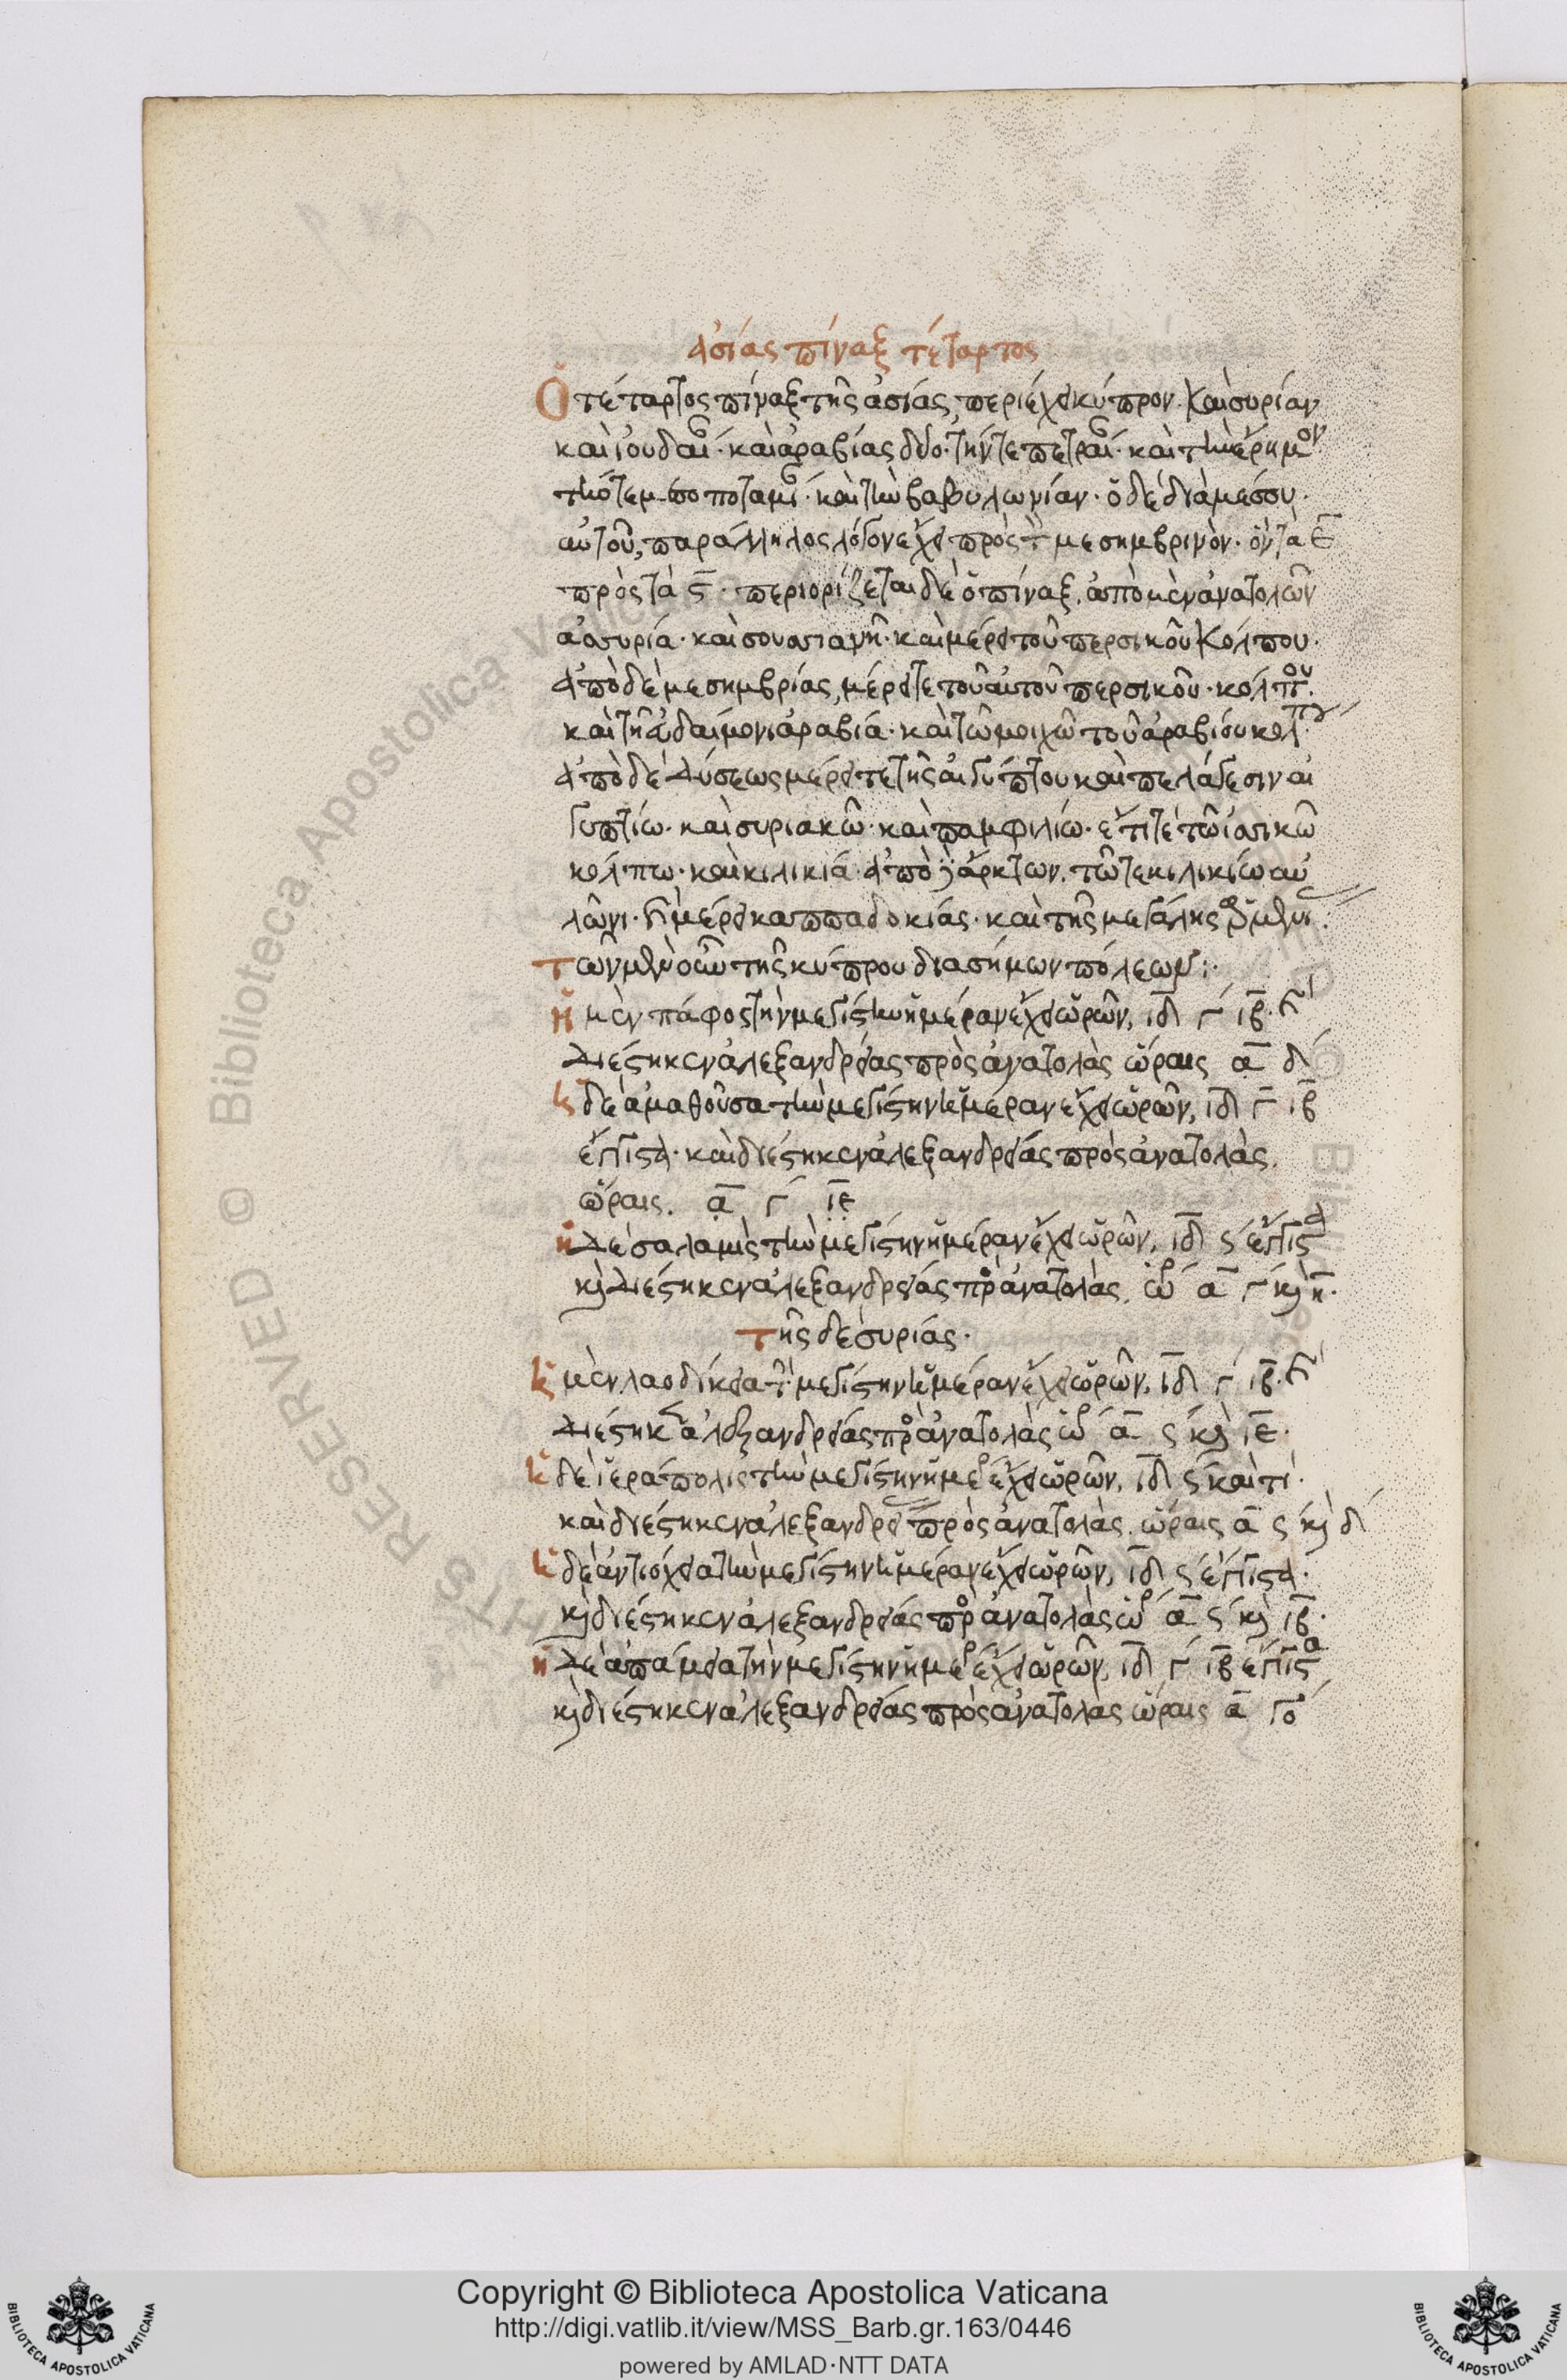 ἀσίας πίναξ τέταρτος
Ὁ τέταρτος πίναξ τῆς ἀσίας, περιέχει κύπρον. καὶ συρίαν
καὶ ἰουδαί. καὶ ἀραβίας δύο. τήν τε πετραί. καὶ τὴν ἔρημον
τήν τε μεσοποταμί. καὶ τὴν βαβυλωνίαν. ὁ δὲ διὰ μέσου.
αὐτοῦ, παράλληλος λόγον ἔχει πρὸς τ μεσημβρινὸν. ὃν τὰ ε̅
πρὸς τὰ ς̅. περιορίζεται δὲ ὁ πίναξ, ἀπὸ μὲν ἀνατολῶν
ἀσυρία. καὶ σουσιανῆ. καὶ μέρει τοῦ περσικοῦ κόλπου.
ἀπὸ δὲ μεσημβρίας, μέρει τε τοῦ αὐτοῦ περσικοῦ. κόλπου.
καὶ τῆ εὐδαίμονι ἀραβία. καὶ τῶ μυιχῶ τοῦ ἀραβίου κόλπου
ἀπὸ δὲ δύσεως μέρει τε τῆς αἰγύπτου καὶ πελάγεσιν αἰ
γυπτίω. καὶ συριακῶ. καὶ παμφιλίω. ἔτι τὲ τῶ ἰσικῶ
κόλπω. καὶ κιλικία. ἀπὸ δὲ ἄρκτων, τῶ τε κιλικίω αὐ
λῶνι. καὶ μέρει καππαδοκίας. καὶ τῆς μεγάλης
τῶν μὲν οὖν τῆς κύπρου διασήμων πόλεων:.
ἡ μὲν πάφος τὴν μεγίστην ἡμέραν ἔχει ὡρῶν, ιδ γ ιβ. καὶ
διέστηκεν ἀλεξανδρείας πρὸς ἀνατολὰς ὥραις α̅ δ
ἡ δὲ ἀμαθοῦσα τὴν μεγίστην ἡμέραν ἔχει ὡρῶν, ιδ γ ιβ
ἔγγιστα. καὶ διέστηκεν ἀλεξανδρείας πρὸς ἀνατολὰς,
ὥραις. α̅ γ ιε
ἡ δὲ σαλαμὶς τὴν μεγίστην ἡμέραν ἔχει ὡρῶν, ιδ ς ἔγγιστα
κὶ διέστηκεν ἀλεξανδρείας πρὸ ἀνατολὰς, ὡρ α̅ γ κὶ η̅.
τῆς δὲ συρίας.
ἡ μὲν λαοδίκεια τ μεγίστην ἡμέραν ἔχει ὡρῶν, ιδ γ ιβ. καὶ
διέστηκεν ἀλεξανδρείας πρὸ ἀνατολὰς ὡρ α̅ ς κὶ ιε.
ἡ δὲ ἱεράπολις τὴν μεγίστην ἡμερ ἔχει ὡρῶν, ιδ ς καὶ τι.
καὶ διέστηκεν ἀλεξανδρεί πρὸς ἀνατολὰς, ὥραις α̅ ς κὶ δ
ἡ δὲ ἀντιόχεια τὴν μεγίστην ἡμέραν ἔχει ὡρῶν, ιδ ς ἔγγιστα.
κὶ διέστηκεν ἀλεξανδρείας πρὸ ἀνατολὰς ὡρ α̅ ς κὶ ιβ.
ἡ δὲ ἀπάμεια τὴν μεγίστην ἡμερ ἔχει ὡρῶν, ιδ γ ιβ ἔγγιστα
κὶ διέστηκεν ἀλεξανδρείας πρὸς ἀνατολὰς ὥραις α̅ γο
Biblioteca Apostolica Vaticana
©
RIGHTS RESERVED
Copyright © Biblioteca Apostolica Vaticana
http://digi.vatlib.it/view/MSS_Barb.gr.163/0446
powered by AMLAD·NTT DATA
BIBLIOTECA APOSTOLICA VATICANA
BIBLIOTECA APOSTOLICA VATICANA